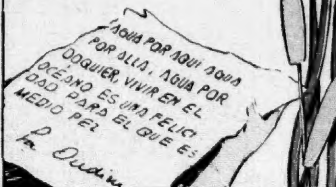 "AGUA POR AQUI AGUA
POR ALLA, AGUA POR
DOQUIER, VIVIR EN EL
OCÉANO ES UNA FELICI
DAD PARA EL QUE ES
MEDIO PEZ
La Ondina